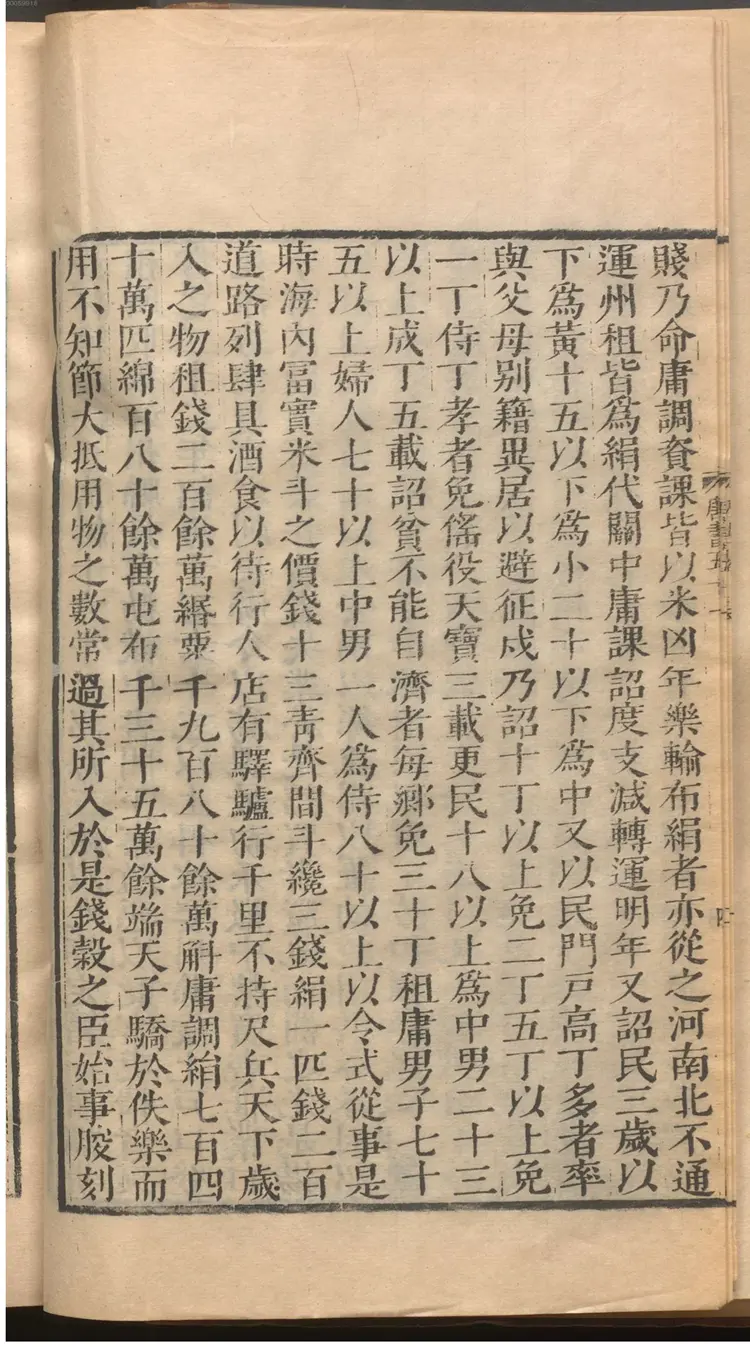 賤乃命庸調資課皆以米凶年樂輸布絹者亦從之河南北不通
運州租皆爲絹代關中庸課詔度支減轉運明年又詔民三歲以
下爲黃十五以下爲小二十以下爲中又以民門戸高丁多者率
與父母別籍異居以避征戍乃詔十丁以上免二丁五丁以上免
一丁侍丁孝者免傜役天寶三載更民十八以上爲中男二十三
以上成丁五載詔貧不能自濟者每鄉免三十丁租庸男子七十
五以上婦人七十以上中男一人爲侍八十以上以令式從事是
時海內冨實米斗之價錢十三靑齊間斗纔三錢絹一匹錢二百
道路列肆具酒食以待行人店有驛驢行千里不持尺兵天下歲
入之物租錢二百餘萬緡粟千九百八十餘萬斛庸調絹七百四
十萬匹綿百八十餘萬屯布千三十五萬餘端天子驕於佚樂而
用不知節大抵用物之數常過其所入於是錢穀之臣始事朘刻
唐書五十一